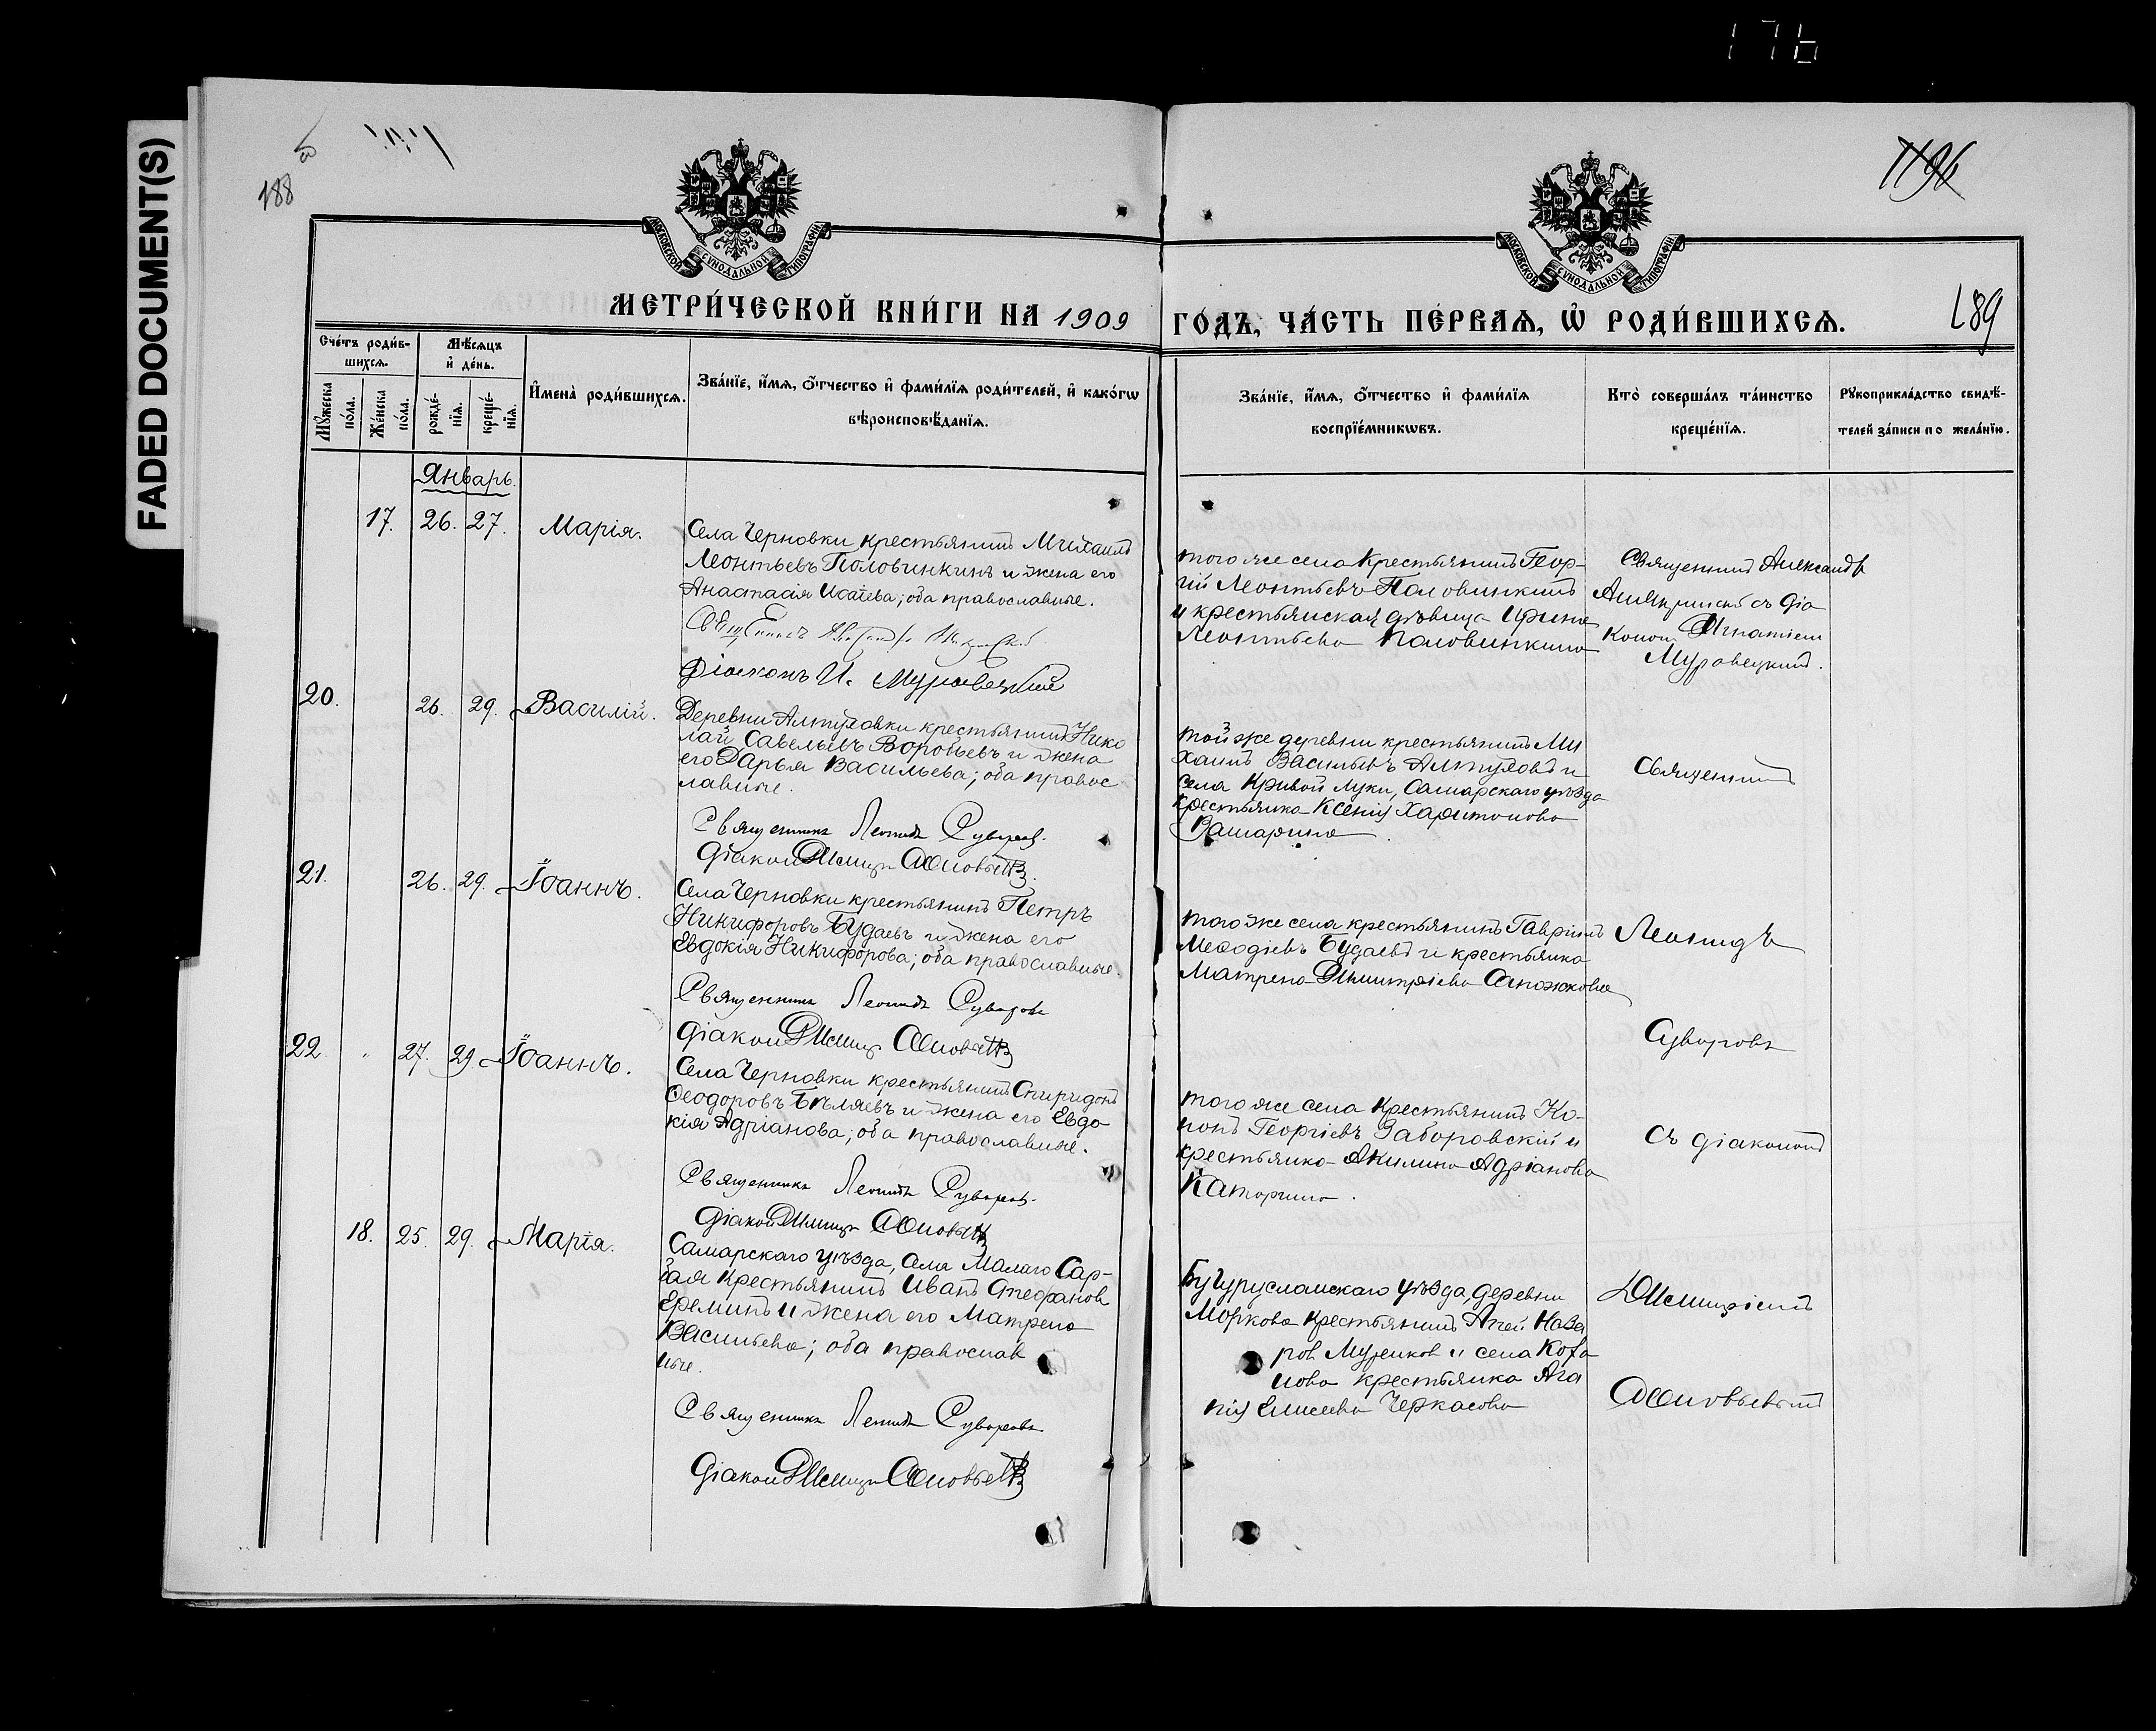 176
FADED DOCUMENT(S)
188
1196
189
МОСКОВСКОЙ СѴНОДАЛЬНОЙ ТИПОГРАФІИ
МОСКОВСКОЙ СѴНОДАЛЬНОЙ ТИПОГРАФІИ
МЕТРИ́ЧЕСКОЙ КНИ́ГИ НА 1909 ГО́ДЪ, ЧА́СТЬ ПЕ́РВАѦ, Ѡ҆ РОДИ́ВШИХСѦ.
Сче́тъ роди́в-
шихсѧ.
Мѣ́сѧцъ
и҆ де́нь.
Мꙋ́жеска
по́ла.
Же́нска
по́ла.
рожде́-
нїѧ.
креще́-
нїѧ.
И҆мена̀ роди́вшихсѧ.
Зва́нїе, и҆́мѧ, ѻ҆́тчество и҆ фами́лїѧ роди́телей, и҆ како́гѡ
вѣроисповѣ́данїѧ.
Зва́нїе, и҆́мѧ, ѻ҆́тчество и҆ фами́лїѧ
воспрїе́мникѡвъ.
Кто̀ соверша́лъ та́инство
креще́нїѧ.
Рꙋкоприкла́дство свидѣ́-
телей за́писи по жела́нїю.
Январь.
17. 26. 27. Марія.
Села Черновки крестьянинъ Михаилъ
Леонтьевъ Половинкинъ и жена его
Анастасія Исаіева; оба православные.
Діаконъ И. Муравецкій
того же села крестьянинъ Геор-
гій Леонтьевъ Половинкинъ
и крестьянская дѣвица Ирина
Леонтьева Половинкина
Священникъ Александръ
съ діа
кономъ Игнатіемъ
Муравецкимъ.
20. 26. 29. Василій.
Деревни Алтуховки крестьянинъ Нико
лай Савельевъ Воробьевъ и жена
его Дарья Васильева; оба правос
лавные.
Священникъ Леонидъ Суворовъ.
Діаконъ Димитр Соловьевъ.
той же деревни крестьянинъ Ми
хаилъ Васильевъ Алтуховъ и
села Кривой Луки, Самарскаго уѣзда
крестьянка Ксенія Харитонова
Вашарина.
Священникъ
21. 26. 29. Іоаннъ.
Села Черновки крестьянинъ Петръ
Никифоровъ Будаевъ и жена его
Евдокія Никифорова; оба православные.
Священникъ Леонидъ Суворовъ
Діаконъ Димитр Соловьевъ
того же села крестьянинъ Гавріилъ
Меѳодіевъ Будаевъ и крестьянка
Матрена Димитріева Сапожкова
Леонидъ
Суворовъ
22 27. 29. Іоаннъ.
Села Черновки крестьянинъ Спиридонъ
Ѳеодоровъ Бѣляевъ и жена его Евдо
кія Адріанова; оба православные.
Священникъ Леонидъ Суворовъ.
Діаконъ Димитр Соловьевъ
того же села крестьянинъ Ко-
нонъ Георгіевъ Заборовскій и
крестьянка Акилина Адріанова
Каторгина.
съ діакономъ
18. 25. 29. Марія.
Самарскаго уѣзда, села Малаго Сар-
бая крестьянинъ Иванъ Стефановъ
Ереминъ и жена его Матрена
Васильева; оба православ
ные.
Священникъ Леонидъ Суворовъ
Діаконъ Димитр Соловьевъ
Бугурусланскаго уѣзда, деревни
Моркова крестьянинъ Аггей Наза
ров и села Коха
нова крестьянка Ага
пія Елисеева Черкасова
Димитріемъ
Соловьевымъ